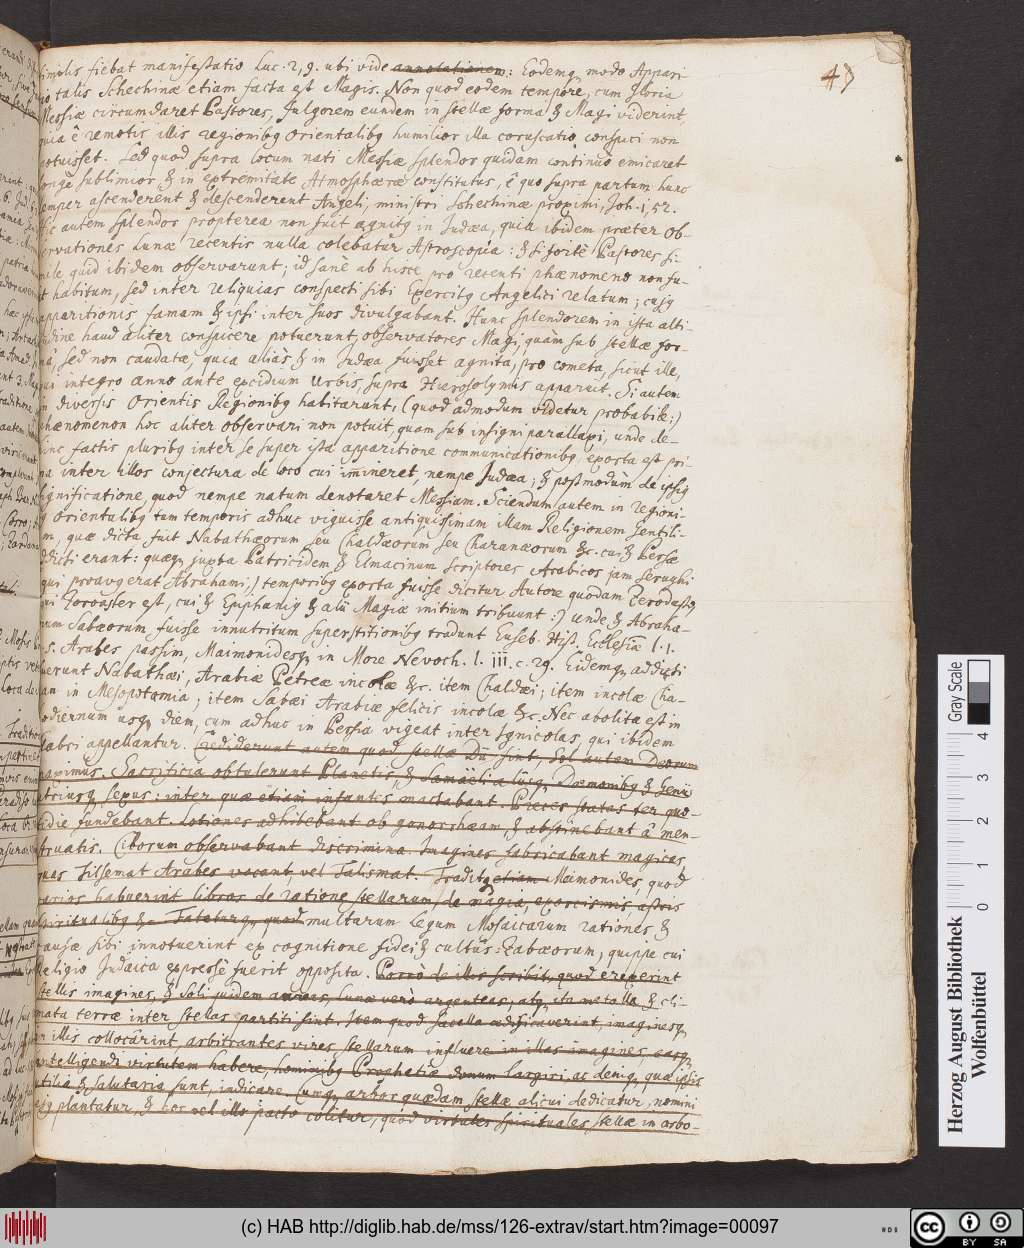 simplis fiebat manifestatio Luc. 2, 9. ubi vide annotationem: Eodemq modo Appari-
tio talis Schechinæ etiam facta est Magis. Non quod eodem tempore, cum Gloria
Messiæ circumdaret Pastores, fulgorem eundem in stellæ forma & Magi viderint
quia è remotis illis regionibq orientalibq humilior illa coruscatio conspici non
potuisset. Sed quod supra locum nati Messiæ splendor quidam continuò emicaret
longè sublimior, & in extremitate Atmosphæræ constitutus, è quo supra partum hunc
semper ascenderent & descenderent Angeli, ministri Schechinæ proximi, Joh. 1, 52.
Hic autem splendor propterea non fuit agnitq in Judæa, quia ibidem præter Ob-
servationes Lunæ recentis nulla colebatur Astroscopia: & si fortè Pastores si-
mile quid ibidem observarunt; id sanè ab hisce pro recenti phænomeno non fu-
it habitum, sed inter reliquias conspecti sibi Exercitq Angelici relatum; cujq
apparitionis famam & ipsi inter suos divulgabant. Hunc splendorem in ista alti-
tudine haud aliter conspicere potuerunt observatores Magi, quàm sub stellæ for-
mâ, sed non caudatæ, quia aliàs & in Judæa fuisset agnita, pro cometa, sicut ille,
qui integro anno ante excidium Urbis, supra Hierosolymis apparuit. Si autem
in diversis Orientis Regionibq habitarunt, (quod admodum videtur probabile:)
phænomenon hoc aliter observari non potuit, quam sub insigni parallaxi, unde de-
hinc factis pluribq inter se super ista apparitione communicationibq, exorta est pri-
ma inter illos conjectura de loco cui immineret, nempe Judæa; & postmodùm de ipsiq
significatione, quod nempe natum denotaret Messiam. Sciendum autem in regioni-
bq Orientalibq tum temporis adhuc viguisse antiquissimam illam Religionem Gentili-
um, quæ dicta fuit Nabathæorum seu Chaldæorum seu Charanæorum &c. cui & Persæ
addicti erant: quæq juxta Patricidem & Elmacinum scriptores Arabicos jam Serughi
(qui proavq erat Abrahami,) temporibq exorta fuisse dicitur Autore quodam Zerodasto,
qui Zoroaster est, cui & Epiphaniq & alii Magiæ initium tribuunt:) unde & Abraha-
mum Sabæorum fuisse innutritum superstitionibq tradunt Euseb. Hist. Ecclesiæ l. 1.
c. 5. Arabes passim, Maimonidesq in More Nevoch. l. III. c. 29. Eidemq addicti
fuerunt Nabathæi, Arabiæ Petreæ incolæ &c. item Chaldæi; item incolæ Cha-
ran in Mesopotamia; item Sabæi Arabiæ felicis incolæ &c. Nec abolita est in
hodiernum usq diem, cum adhuc in Persia vigeat inter Ignicolas, qui ibidem
Gabri appellantur. Crediderunt autem quod stellæ Dii sint, Sol autem Deorum
maximus. Sacrificia obtulerunt Planetis, & Samaëli a luiq, Dæmonibq & Genii
utriusq sexus: inter quæ etiam infantes mactabant. Preces statas ter quo-
tidie fundebant. Lotiones adhibebant ob gonorrhæam, & abstinebant à men-
struatis. Ciborum observabant discrimina. Imagines fabricabant magicas
quas Tilsemat Arabes vocant, vel Talismat. Traditq etiam Maimonides, quod
varios habuerint libros de ratione stellarum, de magia, exorcismis astris
spiritualibq &c. Fateturq, quod multarum legum Mosaicarum rationes &
causæ sibi innotuerint ex cognitione fidei & cultûs Zabæorum, quippe cui
Religio Judaica expressè fuerit opposita. Porrò de illis scribit, quod erexerint
stellis imagines, & Soli quidem aureas, Lunæ verò argenteas, atq ita metalla & cli-
mata terræ inter stellas partiti sint. Item quod sacella ædificaverint, imaginesq
in illis collocârint, arbitrantes vires stellarum influere in illas imagines easq
intelligendi virtutem habere, hominibq Prophetiæ donum largiri, ac deniq quæ ipsis
utilia & salutaria sunt, indicare. Cumq arbor quædam stellæ alicui dedicatur, nomini
ejq plantatur, & hoc vel illo pacto colitur, quod virtutes spirituales stellæ in arbo-
47
Herzog August Bibliothek
Wolfenbüttel
Gray Scale
0 1 2 3 4
(c) HAB http://diglib.hab.de/mss/126-extrav/start.htm?image=00097
cc BY SA